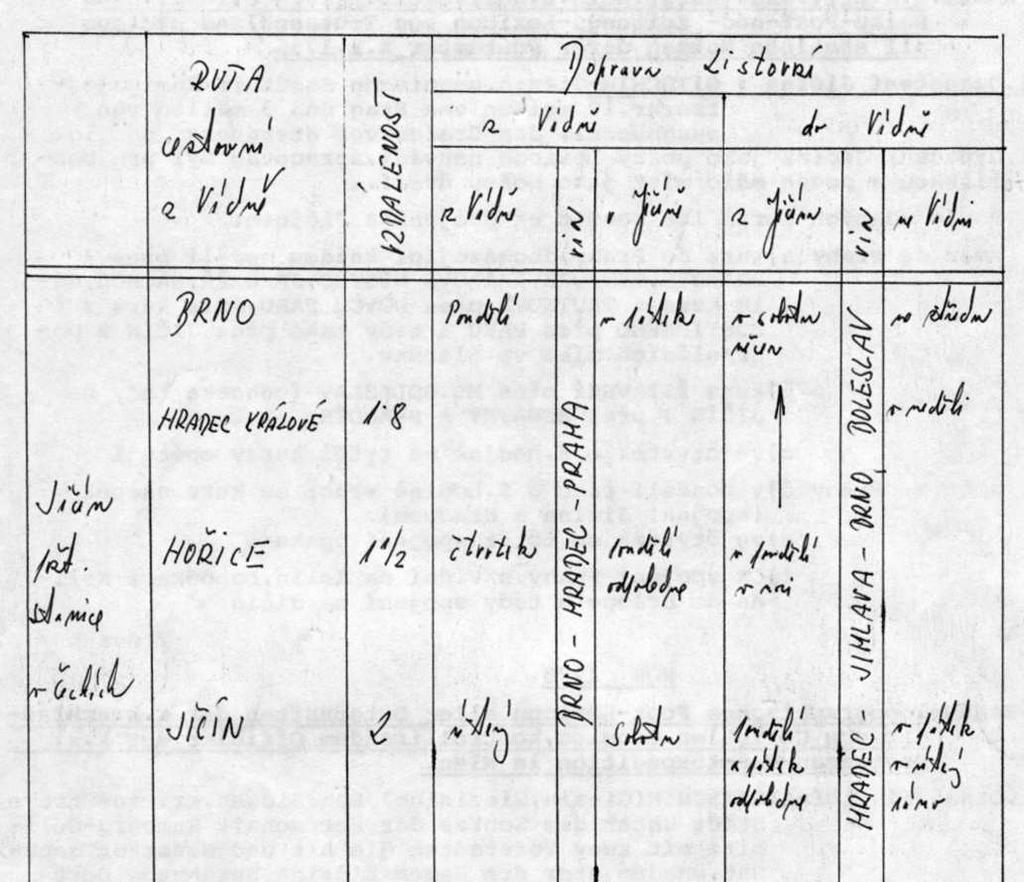 RUTA
cestovní
z Vídně
VZDÁLENOST
Doprava Listovní
z Vídně
do Vídně
z Vídně
v Jičín
z Jičína
ve Vídni
BRNO
pondělí
v pátek
v sobotu
ráno
ve středu
HRADEC KRÁLOVÉ 18
v neděli
Jičín
pšt.
stanice
v Čechách
HOŘICE
1 1/2
čtvrtek
pondělí
odpoledne
v pondělí
v noci
BRNO - HRADEC - PRAHA
HRADEC - JIHLAVA - BRNO
BOLESLAV
JIČÍN
2
v úterý
Sobota
pondělí
v pátek
odpoledne
v pátek
v úterý
ráno